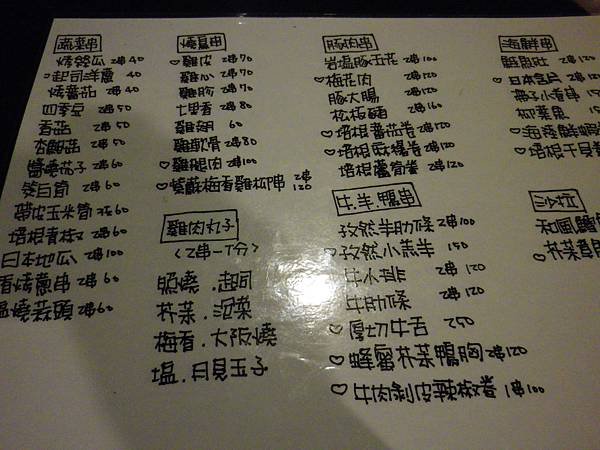 蔬菜串
烤絲瓜 2串40
♡起司洋蔥 40
烤蕃茄 2串40
四季豆 2串50
香菇 2串50
杏鮑菇 2串50
醬燒茄子 2串60
筊白筍 2串60
帶皮玉米筍 3支60
培根青椒 2串60
日本地瓜 2串100
香烤蔥串 2串60
塩燒蒜頭 2串60
燒鳥串
♡雞皮 2串70
♡雞心 2串70
♡雞胗 2串70
七里香 2串80
雞翅 60
雞軟骨 2串80
♡雞腿肉 2串100
♡紫蘇梅香雞柳串 2串120
雞肉丸子
(2串一份)
照燒.起司
芥茉.泡菜
梅香.大阪燒
塩.月見玉子
豚肉串
岩塩豚五花 2串100
♡梅花肉 2串120
豚大腸 2串120
松板豬 2串160
♡培根蕃茄卷 2串120
♡培根麻糬卷 2串120
♡培根蘆筍卷 2串120
牛.羊.鴨串
孜然羊肋條 2串100
♡孜然小羔羊 150
牛小排 2串120
牛肋條 2串120
♡厚切牛舌 250
♡蜂蜜芥茉鴨胸 2串120
♡牛肉剝皮辣椒卷 1串100
海鮮串
♡日本
柳葉魚
♡培根干貝
沙拉
和風